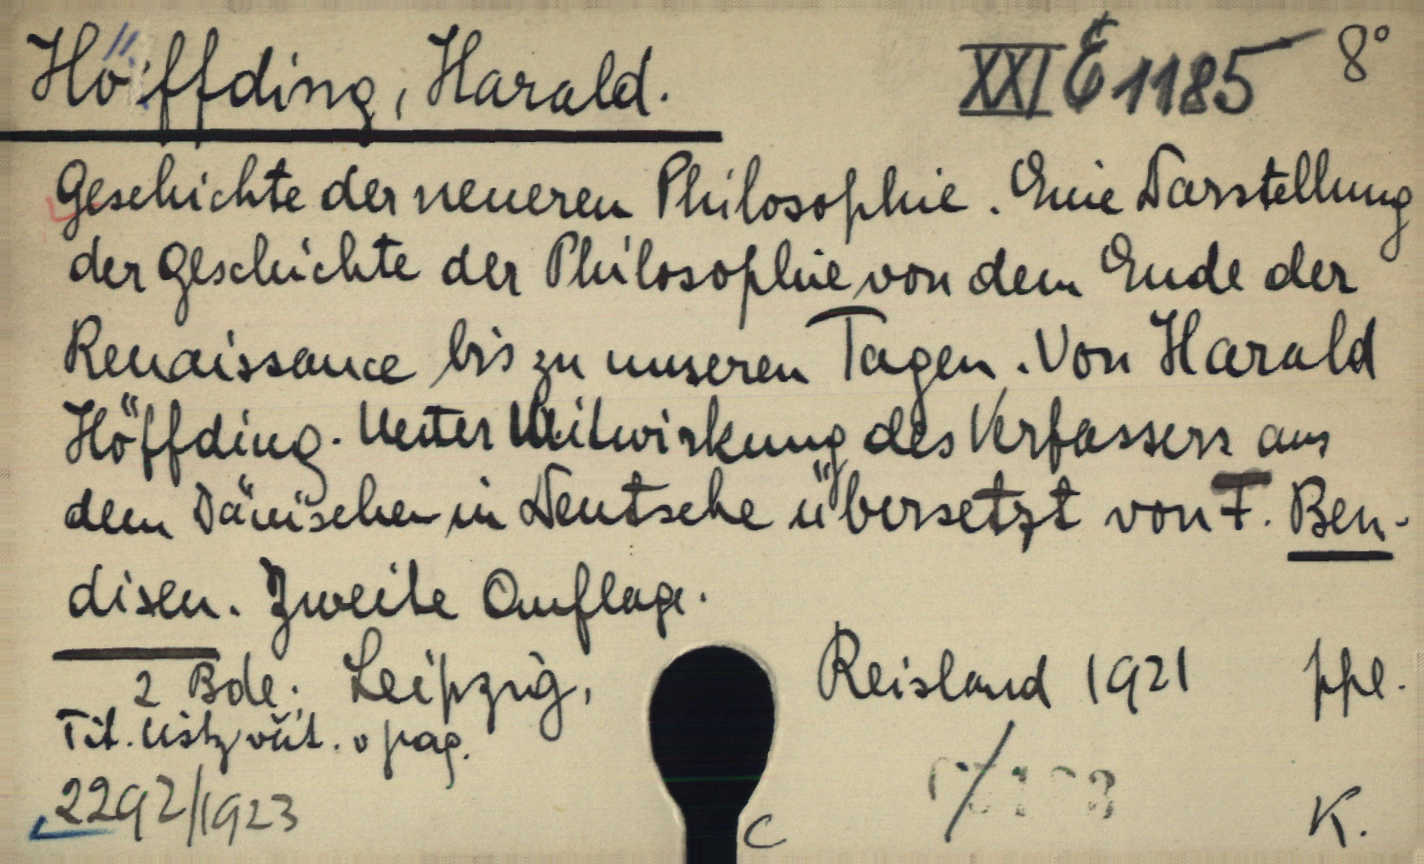 Höffding, Harald.
XXI E 1185 8°
Geschichte der neueren Philosophie. Eine Darstellung
der Geschichte der Philosophie von dem Ende der
Renaissance bis zu unseren Tagen. Von Harald
Höffding. Unter Mitwirkung des Verfassers aus
dem Dänischen in Deutsche übersetzt von F. Ben-
disen. Zweite Auflage.
2 Bde. Leipzig, Reisland 1921 ppl.
Tit. v pag.
2292/1923
C
K.